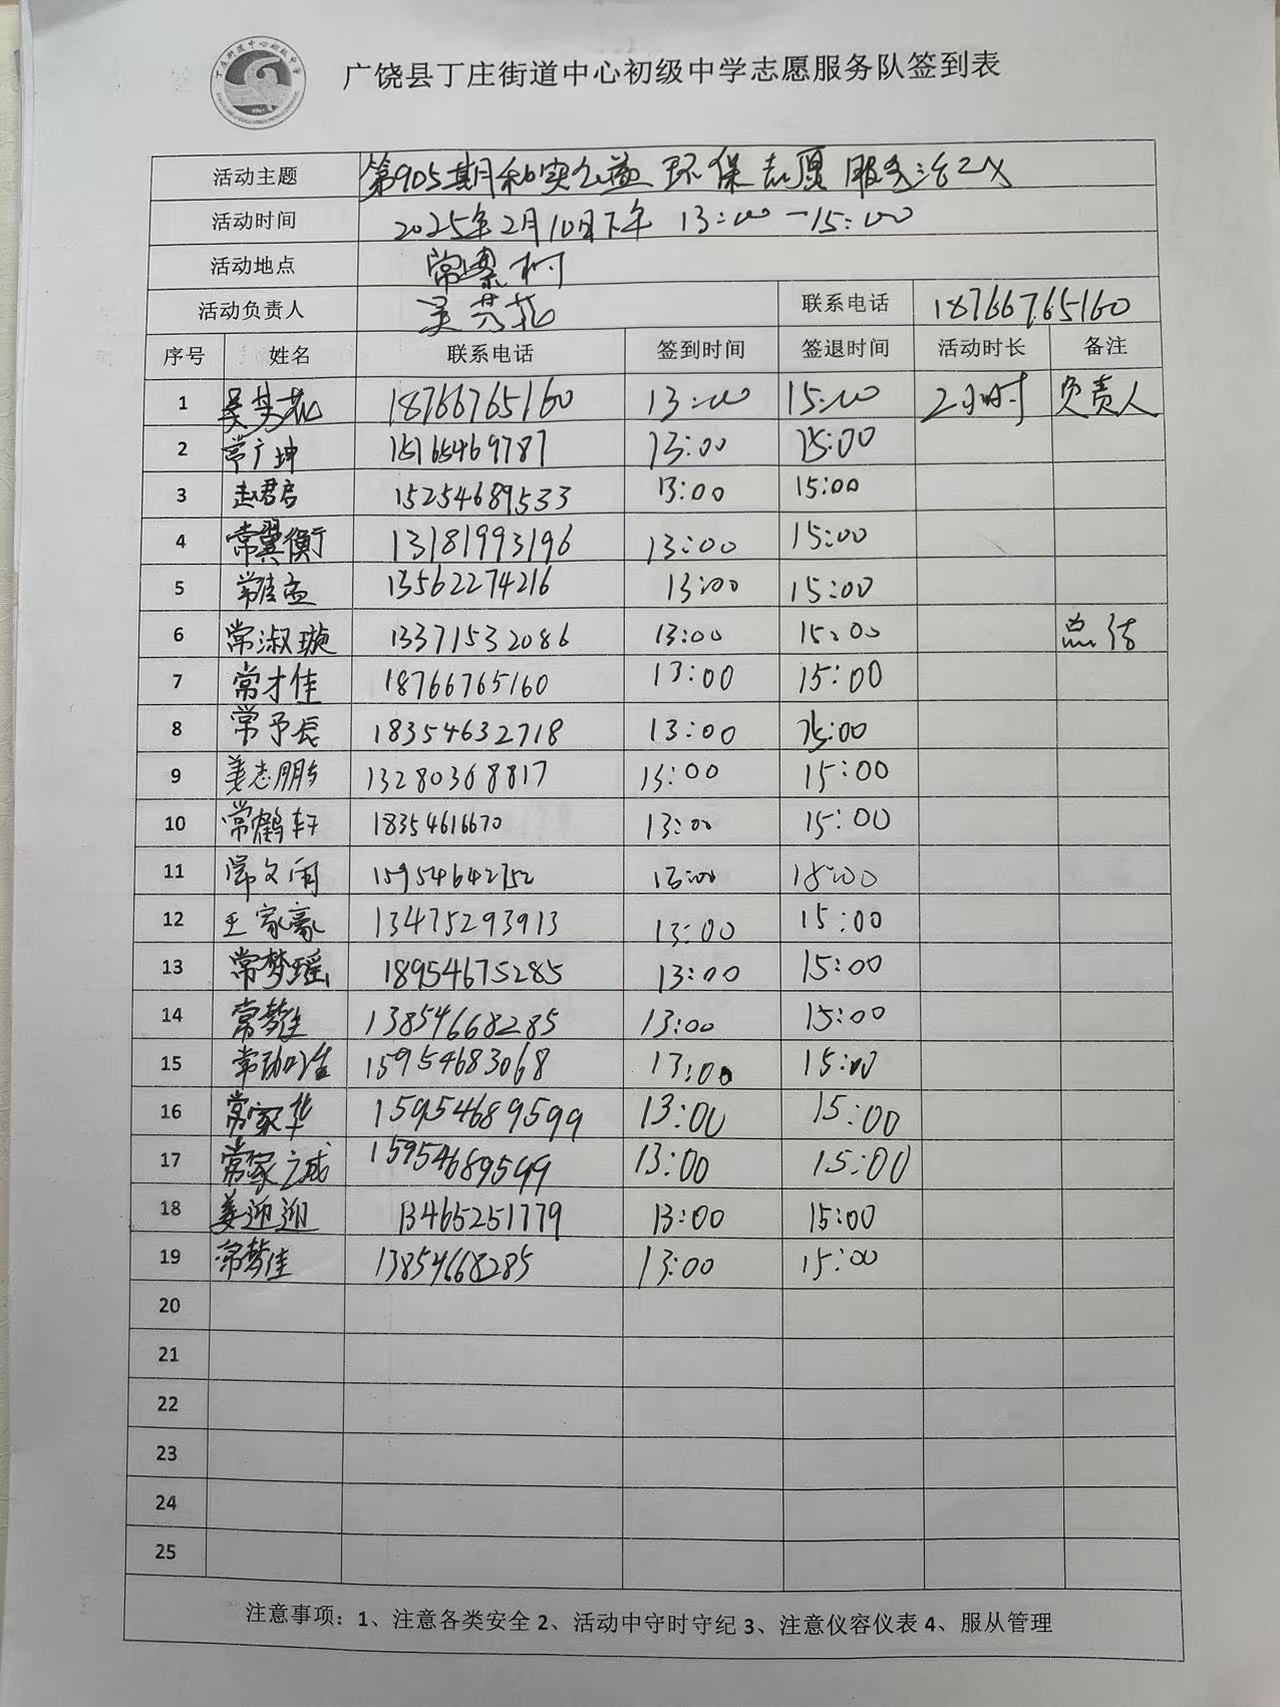 广饶县丁庄街道中心初级中学志愿服务队签到表
活动主题 第905期和实公益 环保志愿服务活动
活动时间 2025年2月10日下午 13:00—15:00
活动地点 常 村
活动负责人 吴芬花 联系电话 18766765160
序号 姓名 联系电话 签到时间 签退时间 活动时长 备注
1 吴芬花 18766765160 13:00 15:00 2小时 负责人
2 常广坤 15165469787 13:00 15:00
3 赵君启 15254689533 13:00 15:00
4 常翼衡 13181993196 13:00 15:00
5 常佳孟 13562274216 13:00 15:00
6 常淑璇 13371532086 13:00 15:00 总结
7 常才佳 18766765160 13:00 15:00
8 常予辰 18354632718 13:00 15:00
9 姜志鹏 13280368817 13:00 15:00
10 常鹤轩 18354616670 13:00 15:00
11 常文闻 15954642752 13:00 15:00
12 王家豪 13475293913 13:00 15:00
13 常梦瑶 18954675285 13:00 15:00
14 常梦佳 13854668285 13:00 15:00
15 常 15954683068 13:00 15:00
16 常家华 15954689599 13:00 15:00
17 常家 15954689599 13:00 15:00
18 姜迎迎 13465251779 13:00 15:00
19 常梦佳 13854668285 13:00 15:00
20
21
22
23
24
25
注意事项：1、注意各类安全 2、活动中守时守纪 3、注意仪容仪表 4、服从管理